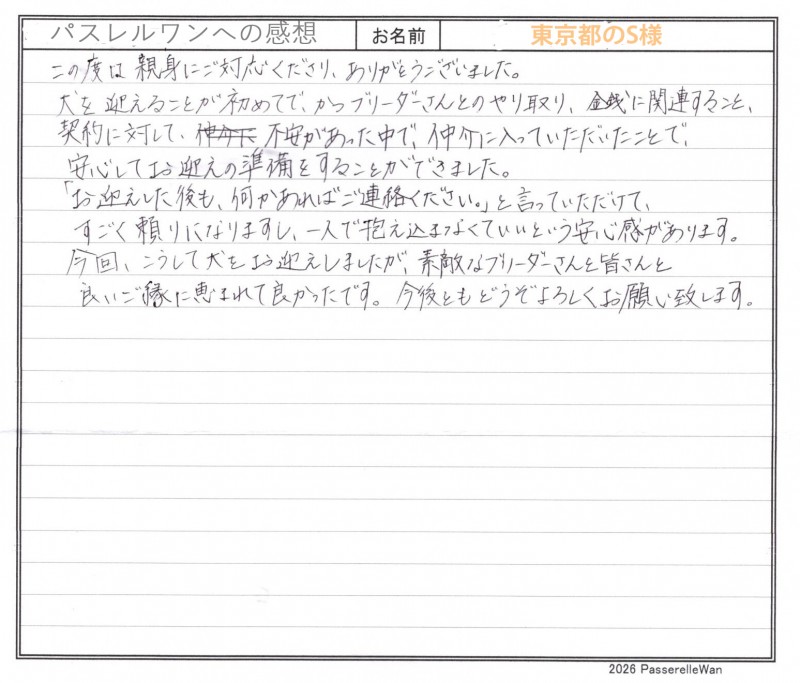 パスレルワンへの感想 お名前 東京都のS様
この度は親身にご対応くださり、ありがとうございました。
犬を迎えることが初めてで、かつブリーダーさんとのやり取り、金銭に関連すること、
契約に対して、不安があった中で、仲介に入っていただいたことで、
安心してお迎えの準備をすることができました。
「お迎えした後も、何かあればご連絡ください。」と言っていただけて、
すごく頼りになりますし、一人で抱え込まなくていいという安心感があります。
今回、こうして犬をお迎えしましたが、素敵なブリーダーさんと皆さんと
良いご縁に恵まれて良かったです。今後ともどうぞよろしくお願い致します。
2026 PasserelleWan